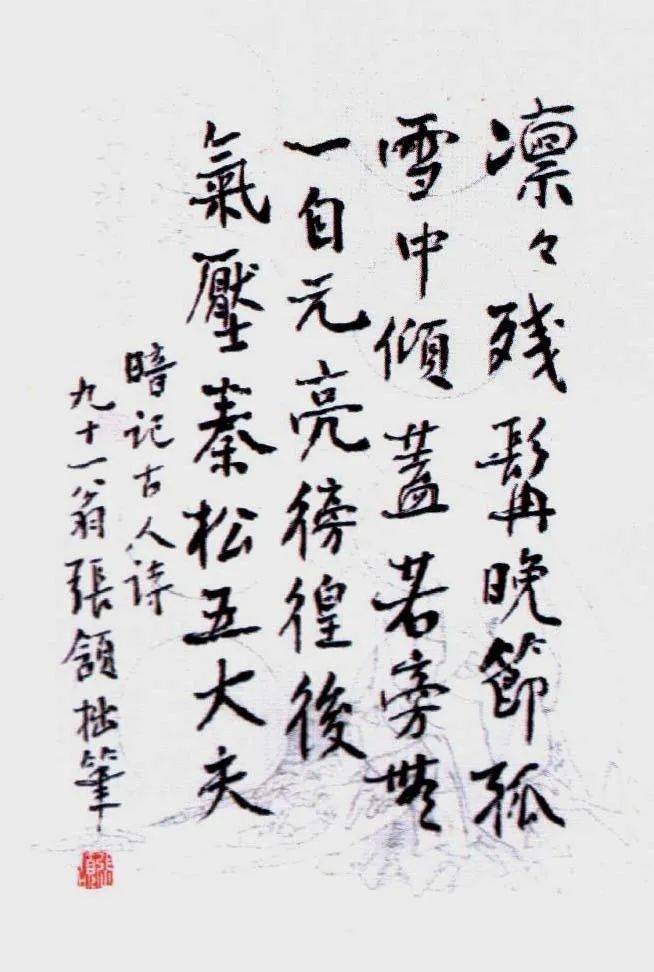 凛々残髯晚節孤
雪中傾蓋若旁無
一自元亮徬徨後
氣壓秦松五大夫
暗記古人詩
九十一翁張頷拙筆